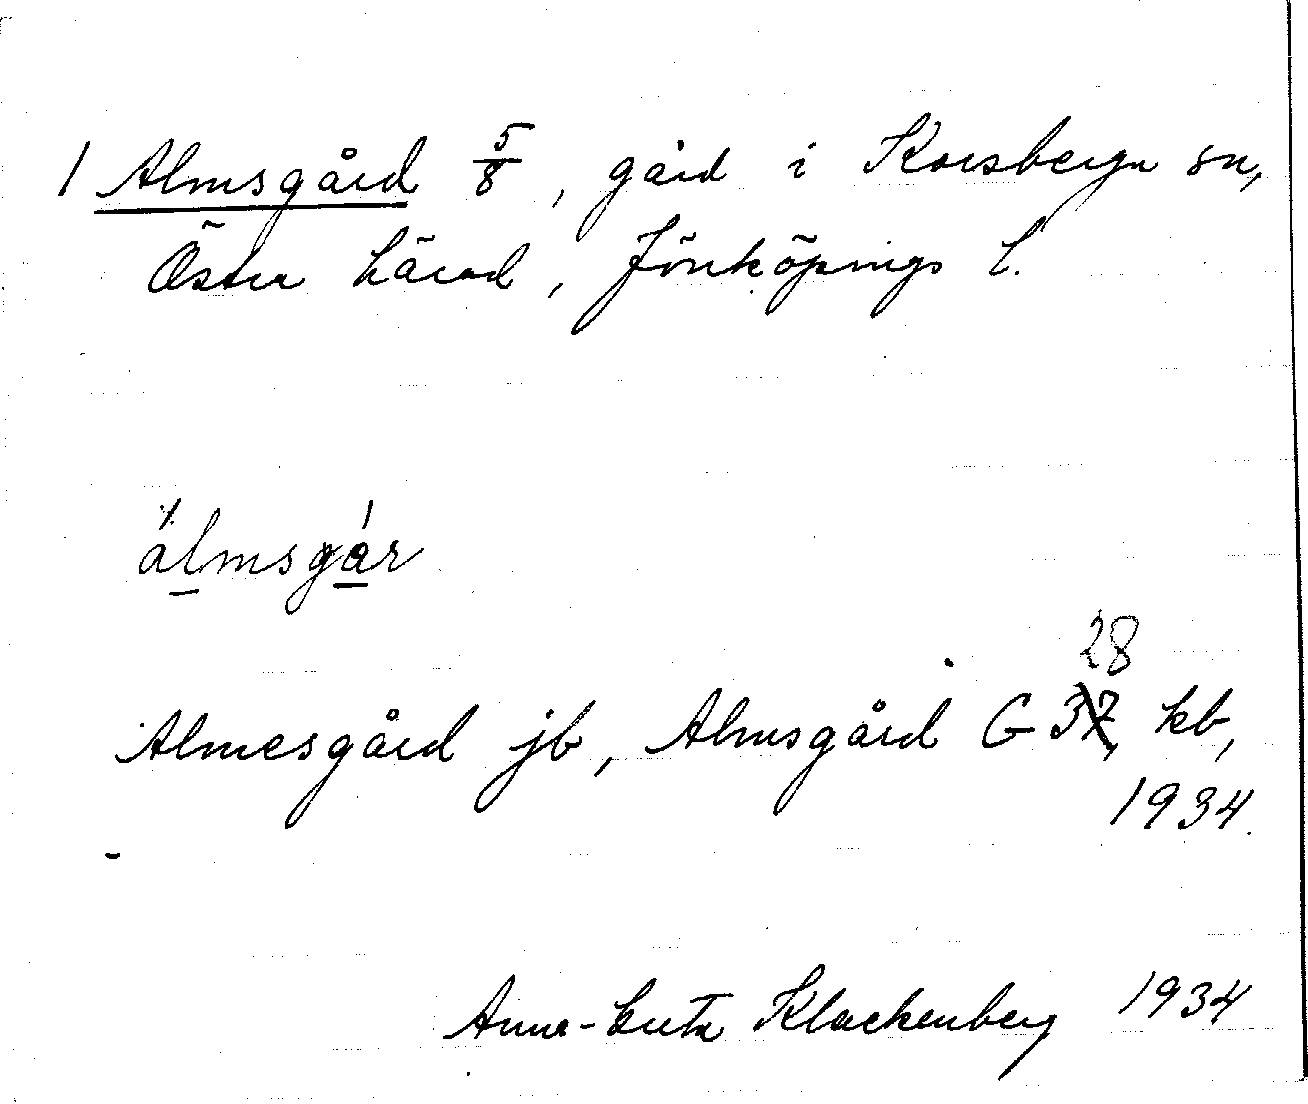 1 Almsgård 5/8, gård i Korsberga sn,
Östra härad, Jönköpings l.
álmsgár
28
Almesgård jb, Almsgård G 37, kb,
1934.
Anna-Greta Klackenberg 1934